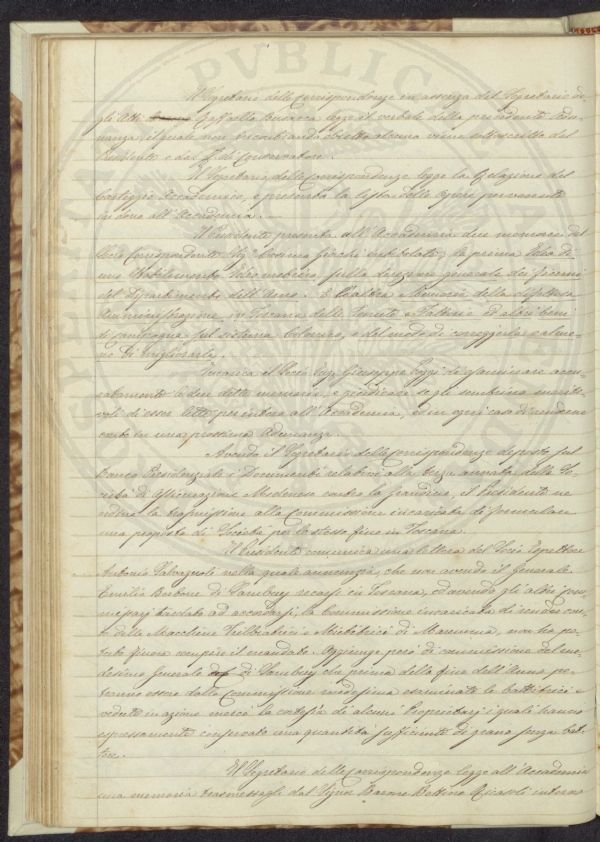 Il Segretario delle corrispondenze in assenza del Segretario de
gli Atti Raffaello Busacca legge il verbale della precedente Adu-
nanza, il quale non incontrando obietto alcuno viene sottoscritto dal
Presidente e dal ff. di Conservatore.
Il Segretario delle corrispondenze legge la Relazione del
Carteggio Accademico, e presenta la lista delle Opere pervenute
in dono all'Accademia.
Il Presidente presenta all'Accademia due memorie del
Socio Corrispondente Sig. Cosimo Giorgi intitolate, la prima Idea di
uno Stabilimento sulla direzione generale dei fiumi
del Dipartimento dell'Arno. E l'altra Memoria della difettosa
Amministrazione in Toscana delle Tenute, Fattorie ed altri beni
di campagna sul sistema Colonico, e del modo di correggerla o alme-
no di migliorarla.
Incarica il Socio Sig. Giuseppe Poggi di esaminare accu-
ratamente le due dette memorie, e giudicare se gli sembrino merite-
voli di esser lette per intero all'Accademia, ed in ogni caso di renderne
conto in una prossima Adunanza.
Avendo il Segretario delle corrispondenze deposto sul
Banco Presidenziale i Documenti relativi alla terza annata della So-
cietà di Assicurazione Modenese contro la grandine, il Presidente ne
ordina la trasmissione alla Commissione incaricata di formulare
una proposta di Società per lo stesso fine in Toscana.
Il Presidente comunica una lettera del Socio Ispettore
Antonio Salvagnoli nella quale annunzia, che non avendo il Generale
Emilio Barbone di Sambuy recarsi in Toscana, ed avendo gli altri Com-
missarj tardato ad accordarsi, la Commissione incaricata di render con-
to delle Macchine Trebbiatrici e Mietitrici di Maremma, non ha po-
tuto finora compire il mandato. Aggiunge però di commissione del me-
desimo Generale di Sambuy che prima della fine dell'Anno po-
tranno essere dalla Commissione medesima esaminate le battitrici e
vedute in azione mercè la cortesia di alcuni Proprietarj i quali hanno
espressamente conservata una quantità sufficiente di grano senza bat-
tere.
Il Segretario delle corrispondenze legge all'Accademia
una memoria trasmessagli dal Signor Barone Bettino Ricasoli intorno